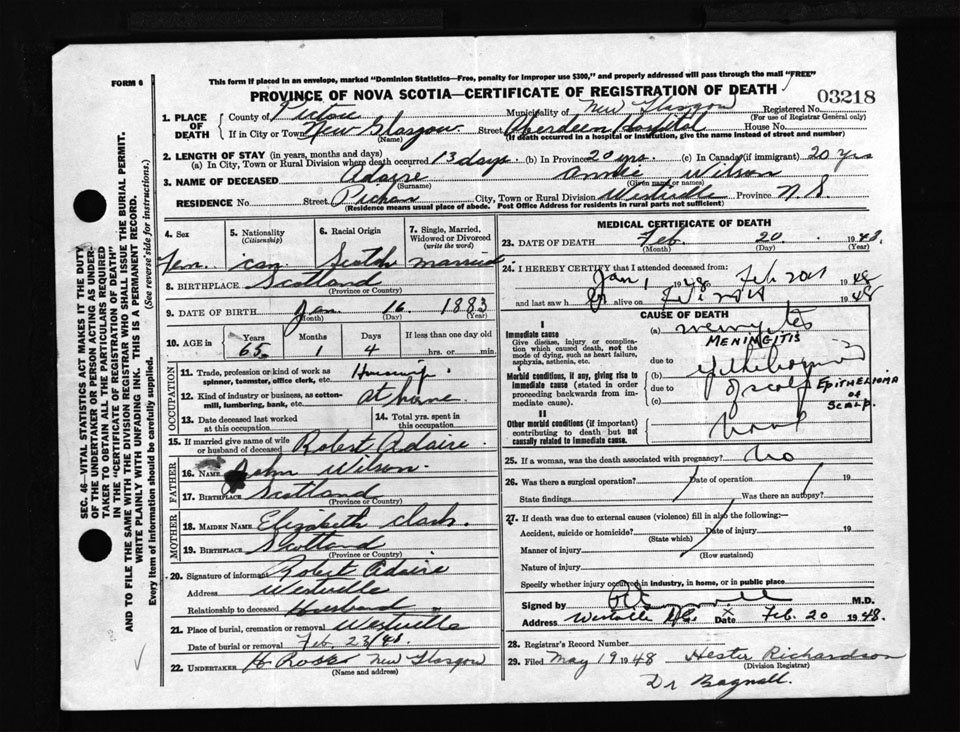 FORM 6
This form if placed in an envelope, marked "Dominion Statistics—Free, penalty for improper use $300," and properly addressed will pass through the mail "FREE"
PROVINCE OF NOVA SCOTIA—CERTIFICATE OF REGISTRATION OF DEATH
03218
1. PLACE OF DEATH
County of Pictou Municipality of New Glasgow Registered No.
(For use of Registrar General only)
If in City or Town New Glasgow Street Aberdeen Hospital House No.
(Name) (If death occurred in a hospital or institution, give the name instead of street and number)
2. LENGTH OF STAY (in years, months and days)
(a) In City, Town or Rural Division where death occurred 13 days (b) In Province 20 yrs. (c) In Canada (if immigrant) 20 yrs
3. NAME OF DECEASED Adaire Annie Wilson
(Surname) (Given name or names)
RESIDENCE No. Street City, Town or Rural Division Westville Province N.S.
(Residence means usual place of abode. Post Office Address for residents in rural parts not sufficient)
4. Sex
5. Nationality (Citizenship)
6. Racial Origin
7. Single, Married, Widowed or Divorced (write the word)
Fem. Can. Scotch married
8. BIRTHPLACE Scotland
(Province or Country)
9. DATE OF BIRTH Jan. 16 1883
(Month) (Day) (Year)
10. AGE in Years Months Days If less than one day old
65 1 4 hrs. or min.
OCCUPATION
11. Trade, profession or kind of work as spinner, teamster, office clerk, etc. Housewife
12. Kind of industry or business, as cotton-mill, lumbering, bank, etc. at home
13. Date deceased last worked at this occupation
14. Total yrs. spent in this occupation
15. If married give name of wife or husband of deceased Robert Adaire.
FATHER
16. NAME John Wilson.
17. BIRTHPLACE Scotland
(Province or Country)
MOTHER
18. MAIDEN NAME Elizabeth Clark.
19. BIRTHPLACE Scotland
(Province or Country)
20. Signature of informant Robert Adaire
Address Westville
Relationship to deceased Husband
21. Place of burial, cremation or removal Westville
Date of burial or removal Feb. 23/48.
22. UNDERTAKER New Glasgow
(Name and address)
MEDICAL CERTIFICATE OF DEATH
23. DATE OF DEATH Feb. 20 1948.
(Month) (Day)
24. I HEREBY CERTIFY that I attended deceased from:
Jan 1 1948 Feb 20th 1948
and last saw her alive on 1948
CAUSE OF DEATH
I
Immediate cause
Give disease, injury or complication which caused death, not the mode of dying, such as heart failure, asphyxia, asthenia, etc.
(a) meningitis
MENINGITIS
due to
Morbid conditions, if any, giving rise to immediate cause (stated in order proceeding backwards from immediate cause).
(b) epithelioma
due to of scalp EPITHELIOMA OF SCALP.
(c)
II
Other morbid conditions (if important) contributing to death but not causally related to immediate cause.
25. If a woman, was the death associated with pregnancy? No
26. Was there a surgical operation? Date of operation 19
State findings Was there an autopsy?
27. If death was due to external causes (violence) fill in also the following:—
Accident, suicide or homicide? Date of injury 19
(State which)
Manner of injury
(How sustained)
Nature of injury
Specify whether injury occurred in industry, in home, or in public place
Signed by M.D.
Address Westville N.S. Date Feb. 20 1948.
28. Registrar's Record Number
29. Filed May 19 1948 Hester Richardson
(Division Registrar)
Dr Bagnall.
SEC. 46—VITAL STATISTICS ACT MAKES IT THE DUTY
OF THE UNDERTAKER OR PERSON ACTING AS UNDER-
TAKER TO OBTAIN ALL THE PARTICULARS REQUIRED
IN THE "CERTIFICATE OF REGISTRATION OF DEATH"
AND TO FILE THE SAME WITH THE DIVISION REGISTRAR WHO SHALL ISSUE THE BURIAL PERMIT.
WRITE PLAINLY WITH UNFADING INK. THIS IS A PERMANENT RECORD.
Every item of information should be carefully supplied. (See reverse side for instructions.)